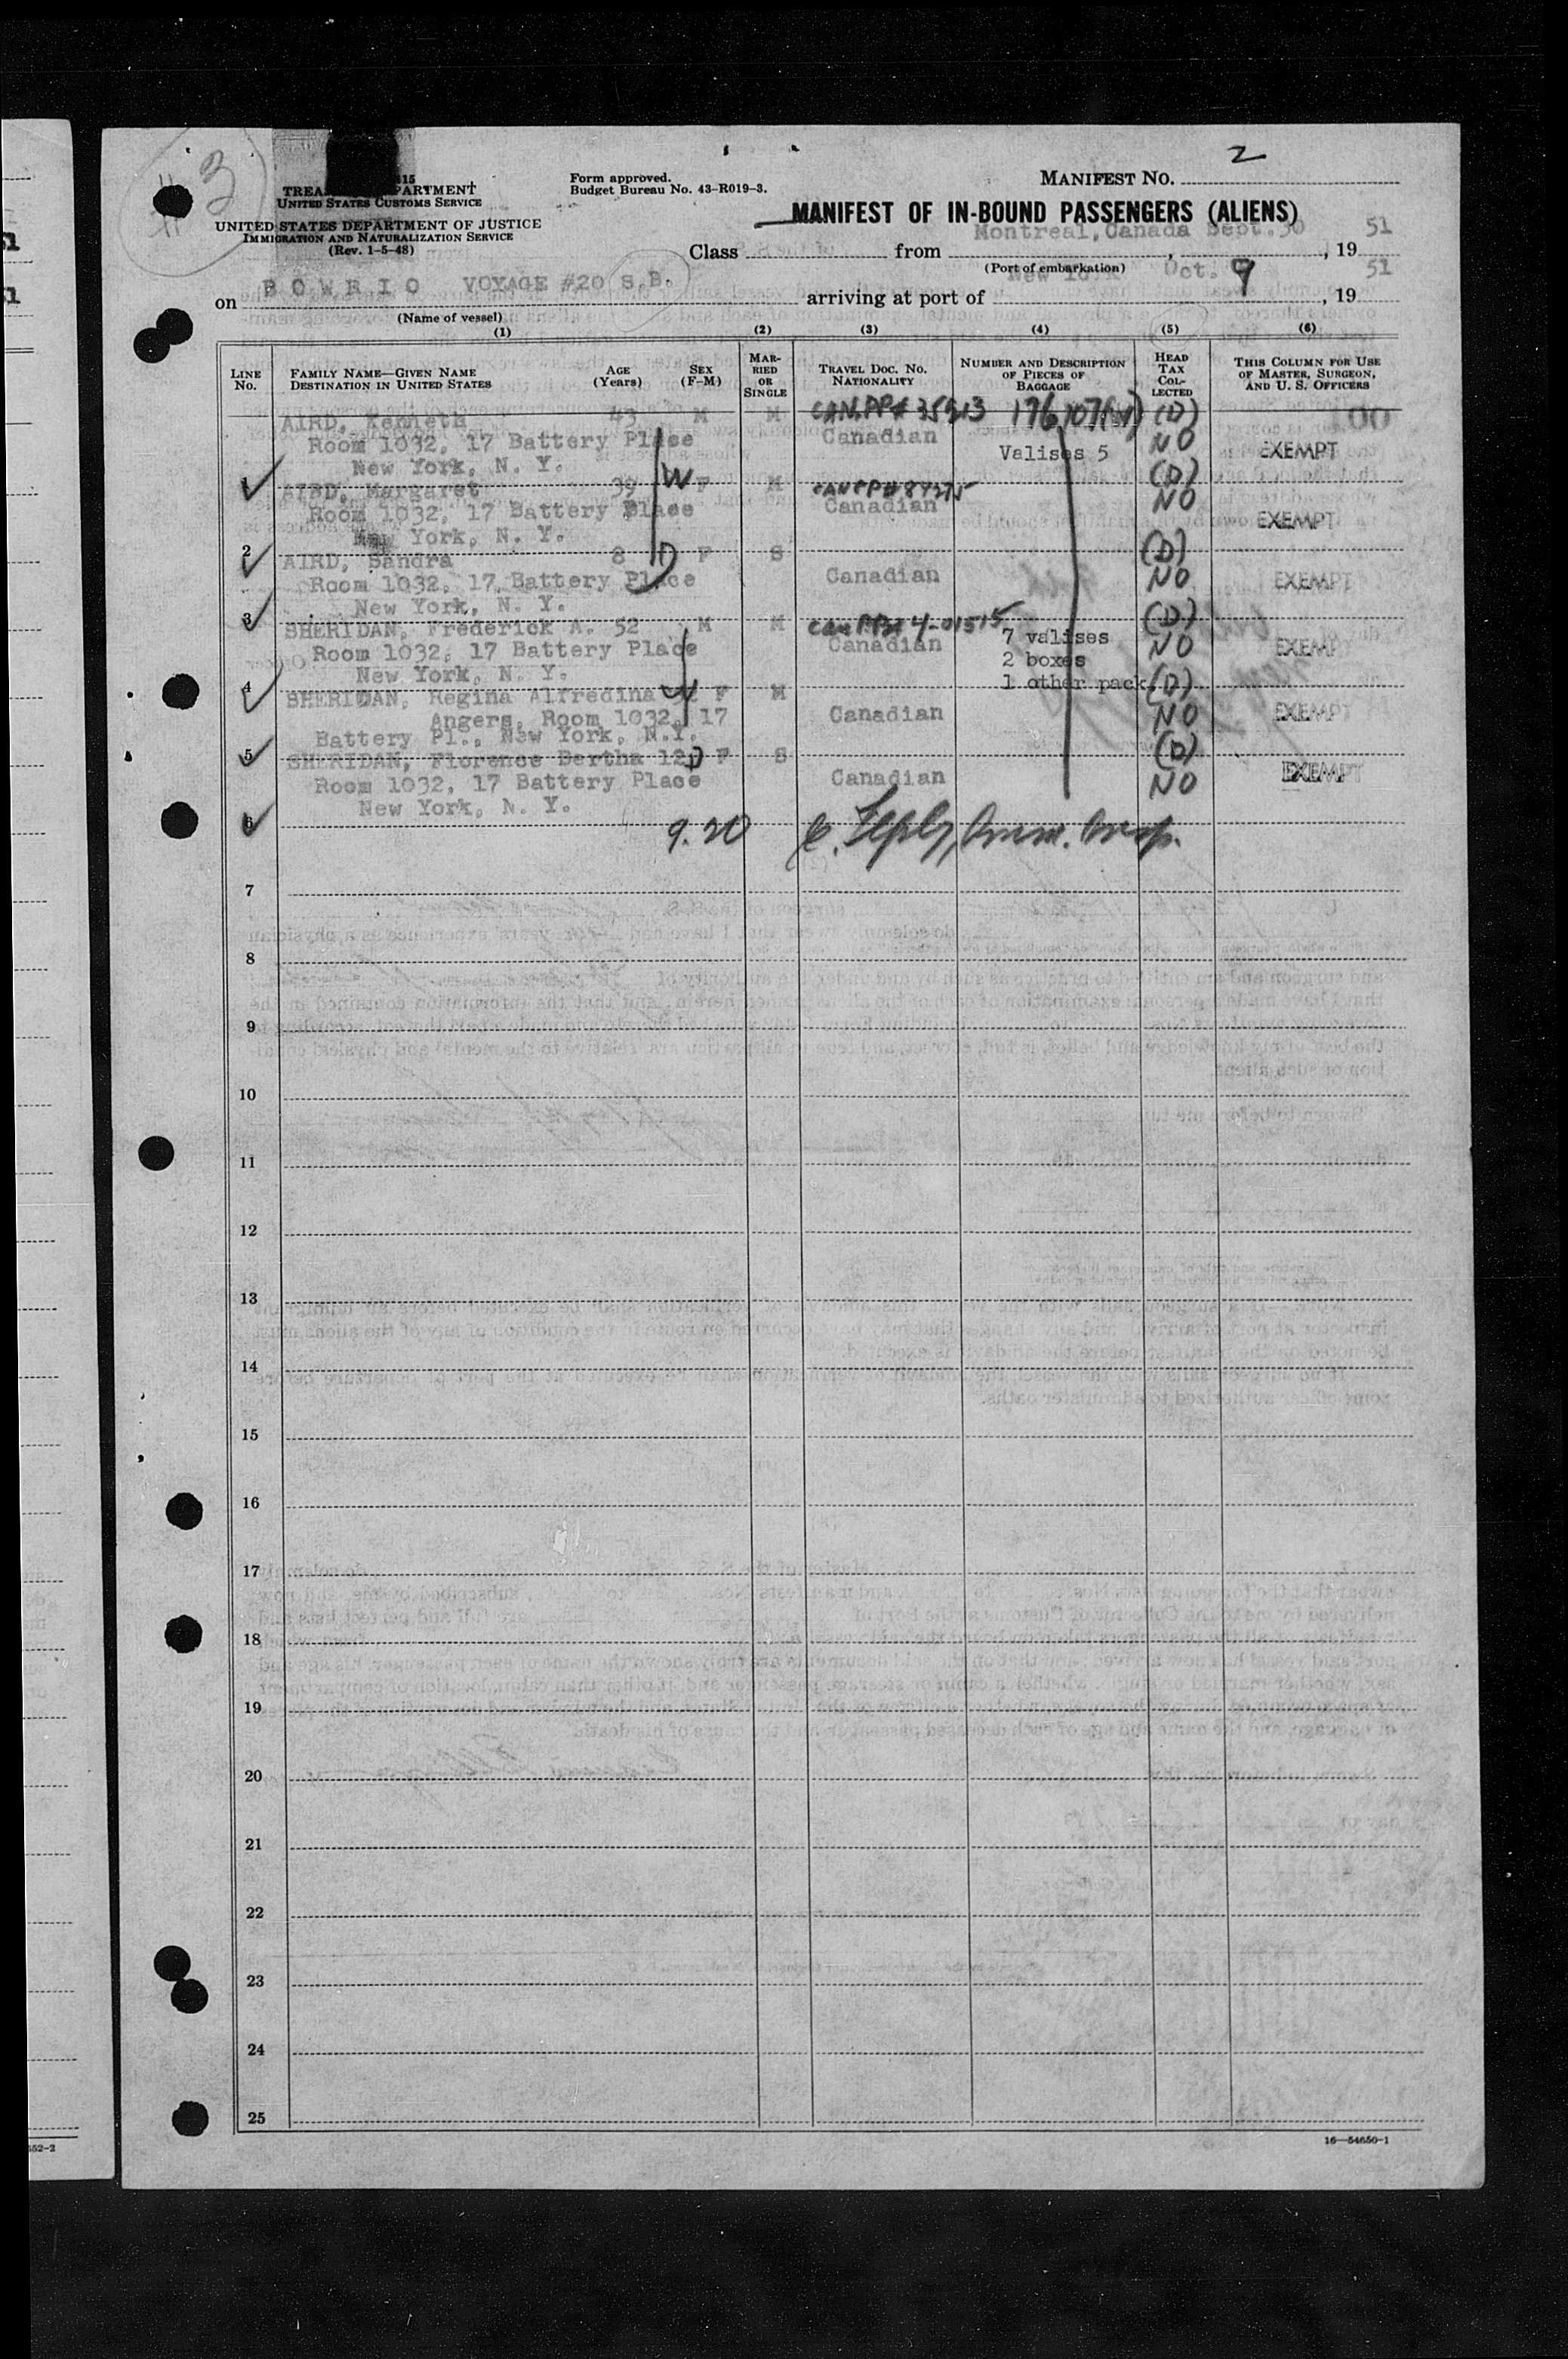 2
#3
TREA PARTMENT
UNITED STATES CUSTOMS SERVICE
UNITED STATES DEPARTMENT OF JUSTICE
IMMIGRATION AND NATURALIZATION SERVICE
(Rev. 1-5-48)
Form approved.
Budget Bureau No. 43-R019-3.
MANIFEST NO.
MANIFEST OF IN-BOUND PASSENGERS (ALIENS)
Class from Montreal, Canada Sept. 30, 19 51
(Port of embarkation)
on BOWRIO VOYAGE #20 S.B. arriving at port of New York Oct. 9, 19 51
(Name of vessel)
(1) (2) (3) (4) (5) (6)
LINE NO.
FAMILY NAME—GIVEN NAME DESTINATION IN UNITED STATES
AGE (Years)
SEX (F-M)
MARRIED OR SINGLE
TRAVEL DOC. NO. NATIONALITY
NUMBER AND DESCRIPTION OF PIECES OF BAGGAGE
HEAD TAX COLLECTED
THIS COLUMN FOR USE OF MASTER, SURGEON, AND U. S. OFFICERS
AIRD, Kenneth 43 M M CAN.PP# 35913 (D)
Room 1032, 17 Battery Place Canadian Valises 5 NO EXEMPT
New York, N. Y.
AIRD, Margaret 39 W F M CAN PP# 89275 (D)
Room 1032, 17 Battery Place Canadian NO EXEMPT
New York, N. Y.
2
AIRD, Sandra 8 D F S (D)
Room 1032, 17 Battery Place Canadian NO EXEMPT
New York, N. Y.
3
SHERIDAN, Frederick A. 52 M M Can PP# 4-01515 7 valises (D)
Room 1032, 17 Battery Place Canadian 2 boxes NO EXEMPT
New York, N. Y. 1 other pack
4
SHERIDAN, Regina Alfredina W F M (D)
Angers, Room 1032, 17 Canadian NO EXEMPT
Battery Pl., New York, N.Y.
5
SHERIDAN, Florence Bertha 12 D F S (D)
Room 1032, 17 Battery Place Canadian NO EXEMPT
New York, N. Y.
6
9.20 Imm. Insp.
7
8
9
10
11
12
13
14
15
16
17
18
19
20
21
22
23
24
25
16—54650-1
652-2